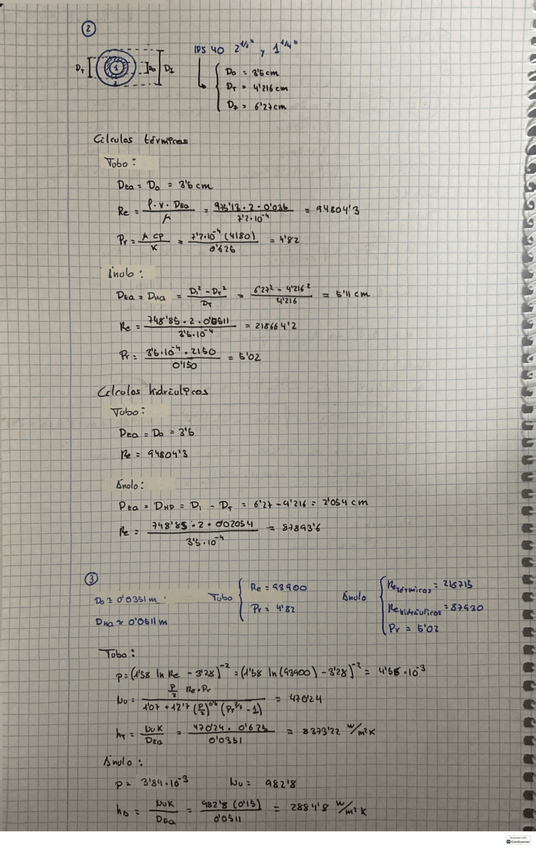 2
IPS 40 2 1/2" y 1 1/4"
D0 = 3'5 cm
DT = 4'216 cm
D1 = 6'27 cm
Cálculos térmicos
Tubo:
DEQ = D0 = 3'5 cm
Re = ρ·v·DEQ / μ = 975'13·2·0'035 / 7'2·10^-4 = 94804'3
Pr = μ cp / K = 7'2·10^-4 (4180) / 0'625 = 4'82
Ánulo:
DEQ = DHA = D1² - DT² / DT = 6'27² - 4'216² / 4'216 = 5'11 cm
Re = 748'85·2·0'0511 / 3'5·10^-4 = 218664'2
Pr = 3'5·10^-4·2150 / 0'150 = 5'02
Cálculos hidráulicos
Tubo:
DEQ = D0 = 3'5
Re = 94804'3
Ánulo:
DEQ = DHD = D1 - DT = 6'27 - 4'216 = 2'054 cm
Re = 748'85·2·0'02054 / 3'5·10^-4 = 87893'6
3
D0 = 0'0351 m
DHA = 0'0511 m
Tubo
Re = 93900
Pr = 4'82
Ánulo
Re térmicos = 218715
Re hidráulicos = 87920
Pr = 5'02
Tubo:
p = (1'58 ln Re - 3'28)^-2 = (1'58 ln (93900) - 3'28)^-2 = 4'55·10^-3
Nu = p/2 Re·Pr / 1'07 + 12'7 (p/2)^0'5 (Pr^2/3 - 1) = 470'24
hT = Nu K / DEQ = 470'24·0'625 / 0'0351 = 8373'22 W/m²K
Ánulo:
p = 3'84·10^-3 Nu = 982'8
Nu K / DEQ = 982'8 (0'15) / 0'0511 = 2884'8 W/m²K
CamScanner